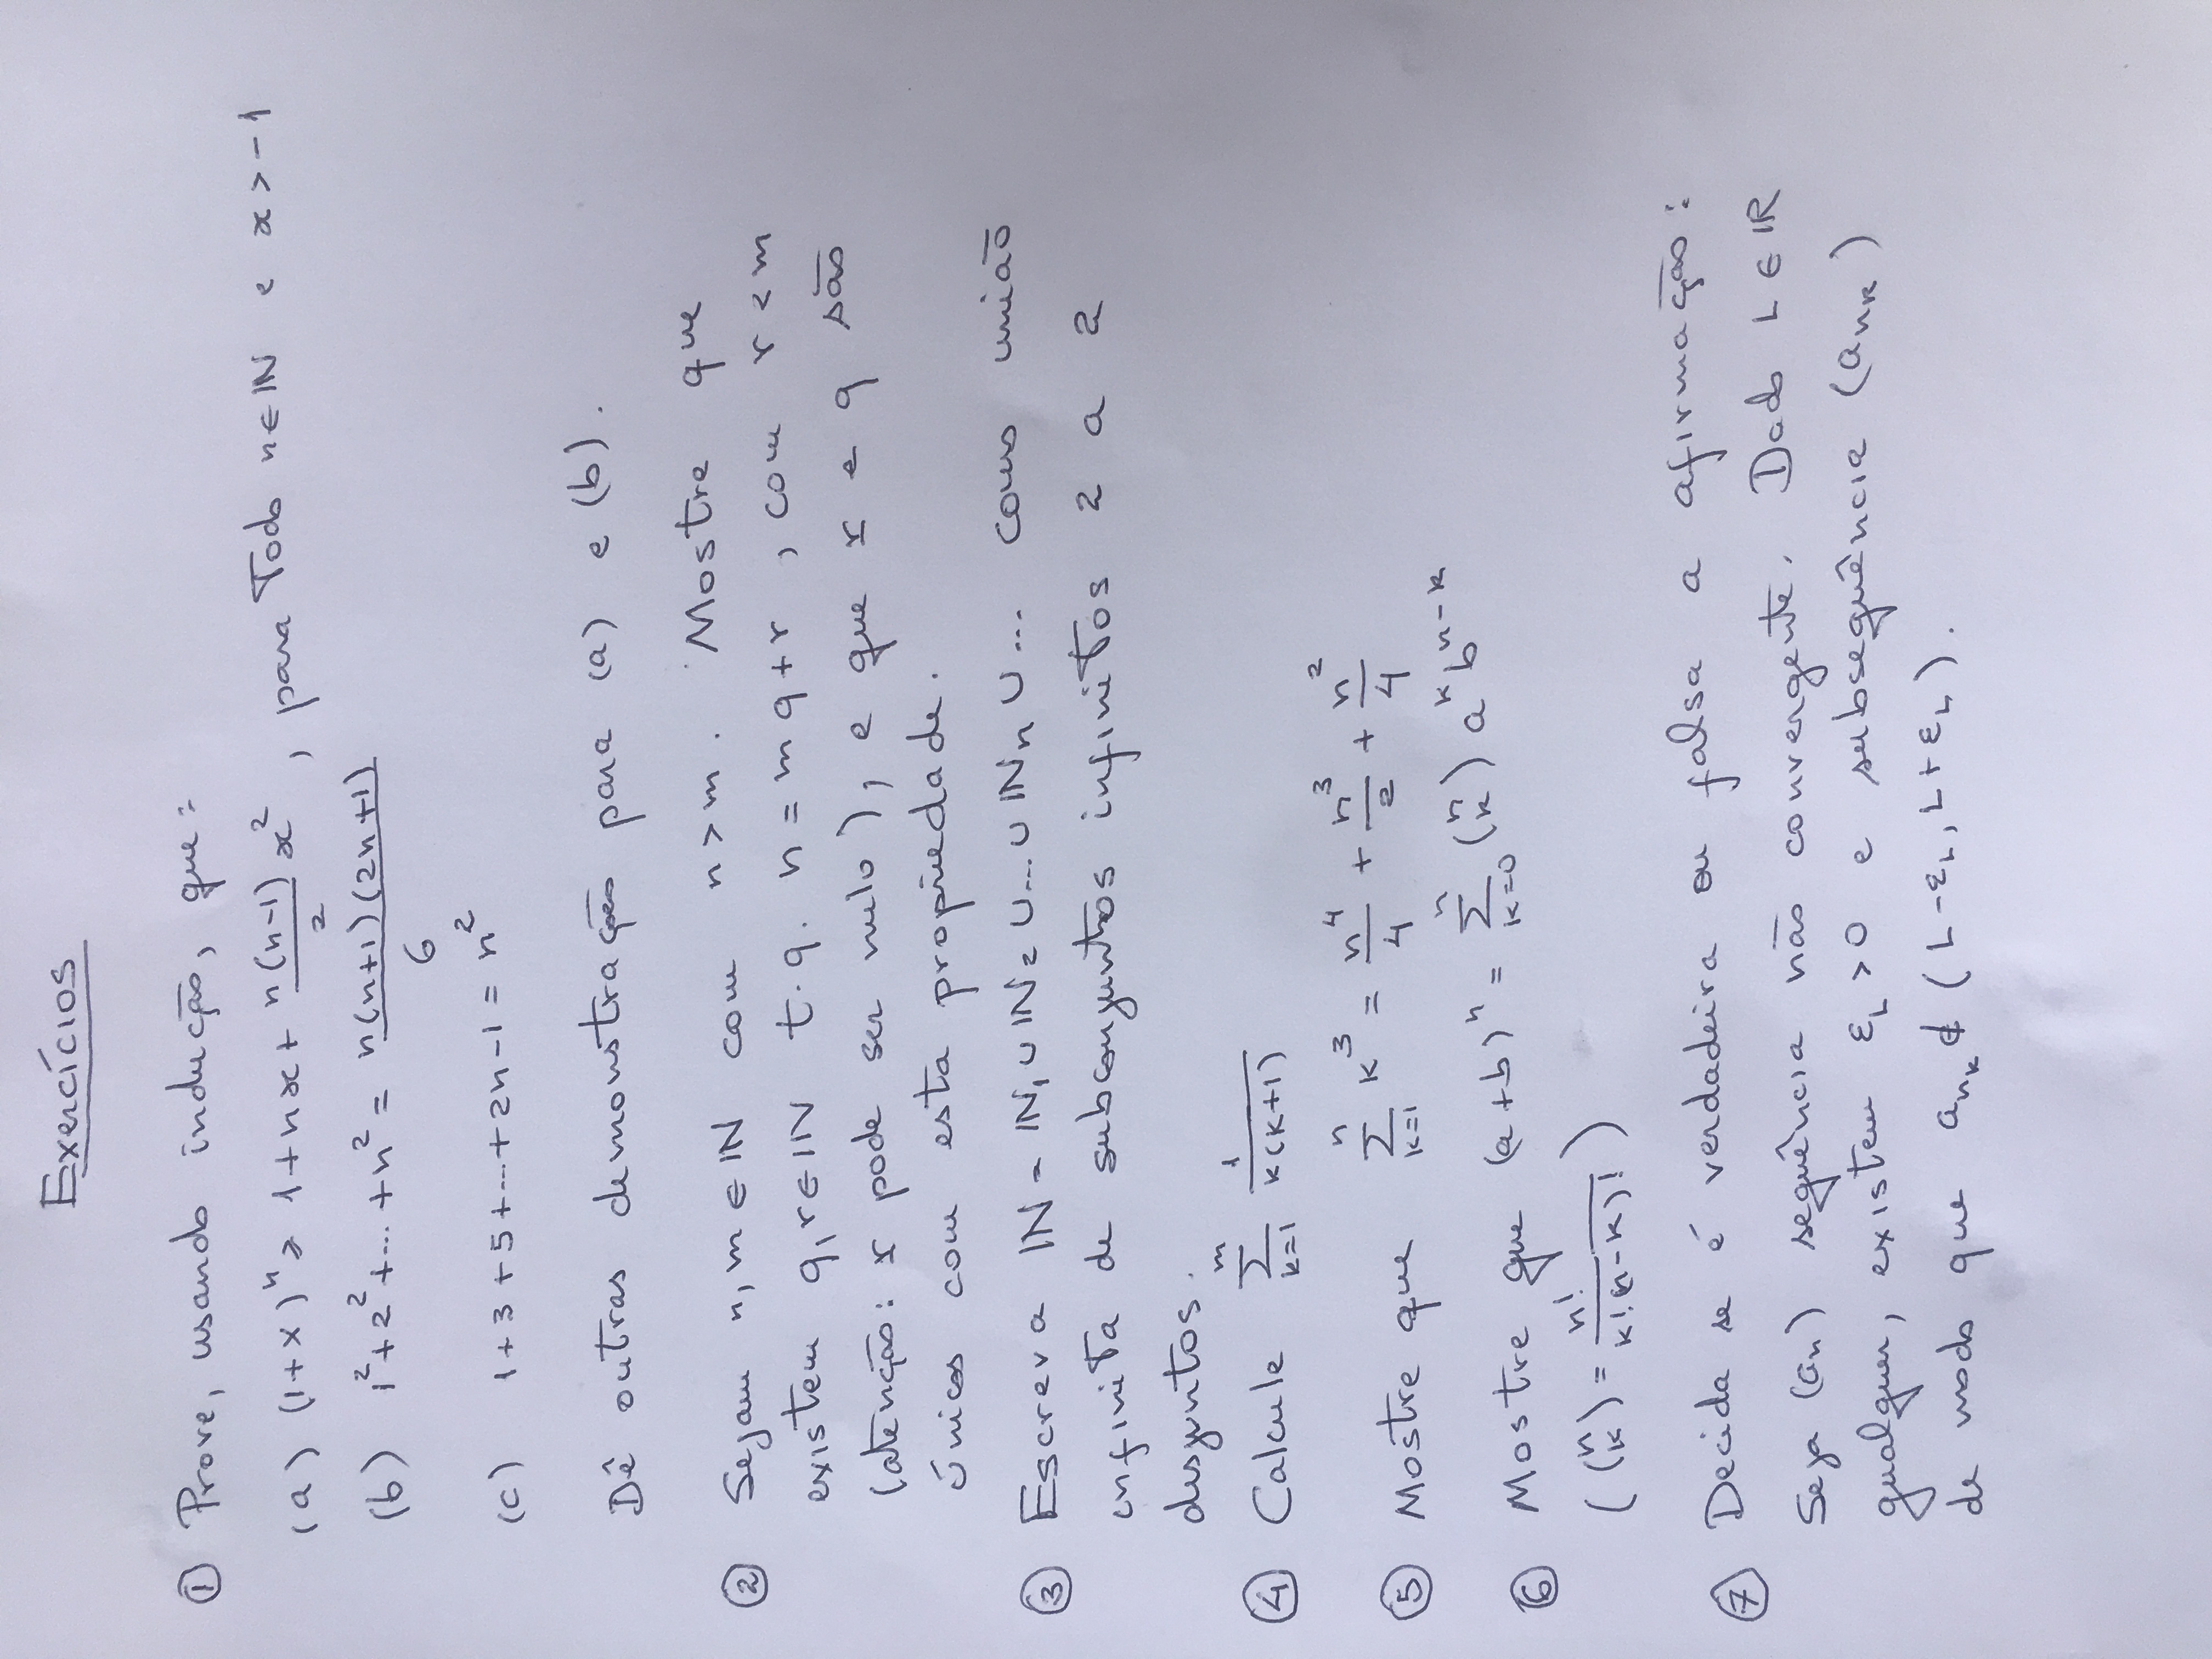 Exercícios
① Prove, usando indução, que:
(a) (1+x)^n ≥ 1+nx+ n(n-1)/2 x^2, para Todo n∈ℕ e x>-1
(b) 1^2+2^2+...+n^2 = n(n+1)(2n+1)/6
(c) 1+3+5+...+2n-1 = n^2
Dê outras demonstrações para (a) e (b).
② Sejam n,m∈ℕ com n>m. Mostre que
existem q,r∈ℕ t.q. n=mq+r, com r<m
(atenção: r pode ser nulo), e que r e q são
únicos com esta propriedade.
③ Escreva ℕ=ℕ₁∪ℕ₂∪...∪ℕₙ∪... como união
infinita de subconjuntos infinitos 2 a 2
disjuntos.
④ Calcule ∑_{k=1}^{m} 1/k(k+1)
⑤ Mostre que ∑_{k=1}^{n} k^3 = n^4/4 + n^3/2 + n^2/4
⑥ Mostre que (a+b)^n = ∑_{k=0}^{n} (n k) a^k b^{n-k}
((n k) = n!/k!(n-k)!)
⑦ Decida se é verdadeira ou falsa a afirmação:
Seja (aₙ) sequência não convergente. Dado L∈ℝ
qualquer, existem ε_L>0 e subsequência (a_{n_k})
de modo que a_{n_k} ∉ (L-ε_L, L+ε_L).